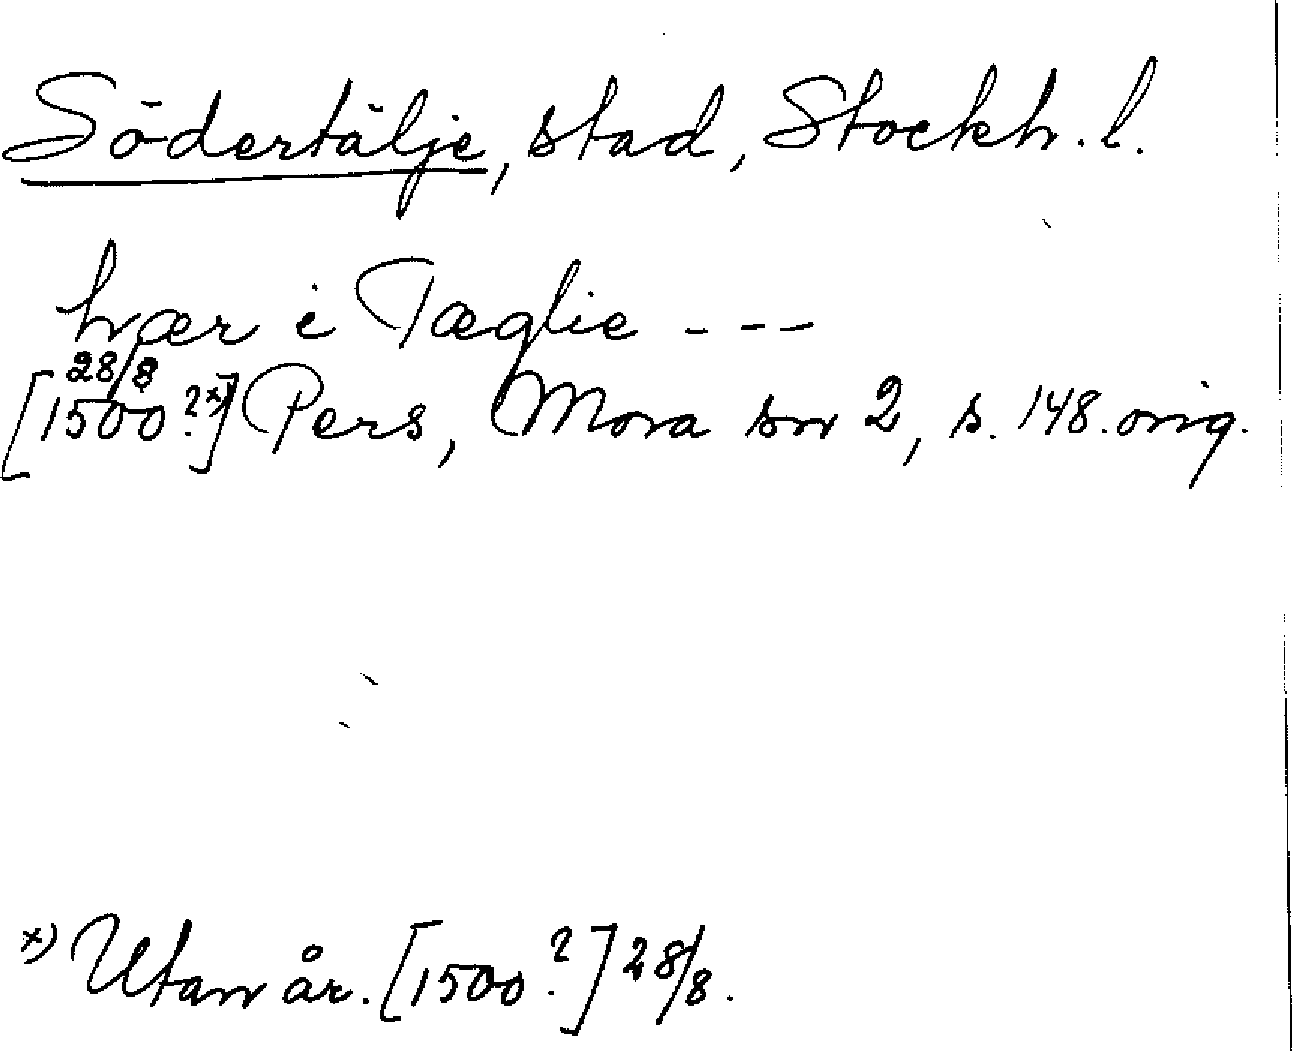 Södertälje, stad, Stockh. l.
hær i Tæglie ---
[28/8 1500?x)] Pers, Mora snr 2, s. 148. orig.
x) Utan år. [1500?] 28/8.